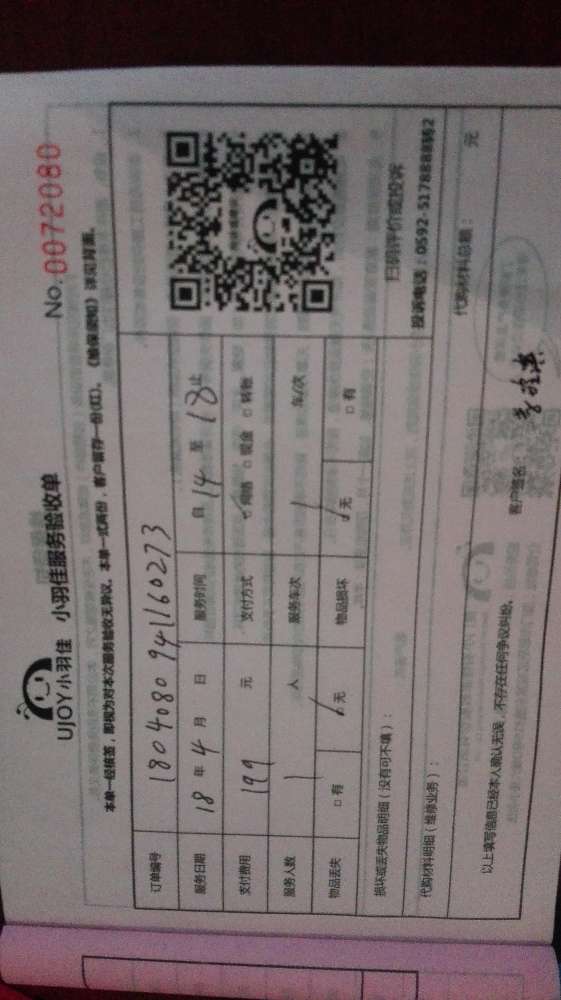 UJOY小羽佳 小羽佳服务验收单 No.0072080
本单一经核签，即视为对本次服务验收无异议，本单一式两份，客户留存一份(红)。《验保须知》详见背面。
订单编号 180408094160273
服务日期 18年4月 日 服务时间 自14至18止
支付费用 199元 支付方式 ☑网络 □现金 □转账
服务人数 1人 服务车次 1车/次
物品丢失 □有 ☑无 物品损坏 ☑无 □有
扫码评价或投诉
投诉电话：0592-5178888转2
损坏或丢失物品明细（没有可不填）：
代购材料明细（维修业务）： 代购材料总额： 元
以上填写信息已经本人确认无误，不存在任何争议纠纷。 客户签名：